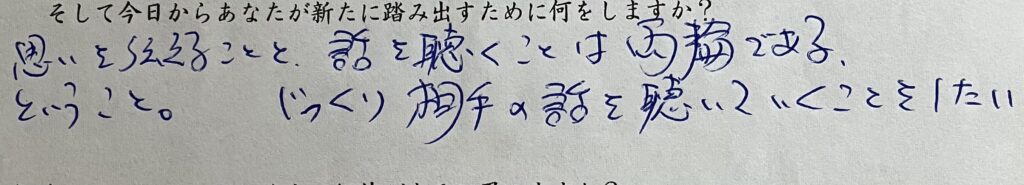 そして今日からあなたが新たに踏み出すために何をしますか?
思いを伝えることと、話を聴くことは両輪である、
ということ。 じっくり相手の話を聴いていくことをしたい